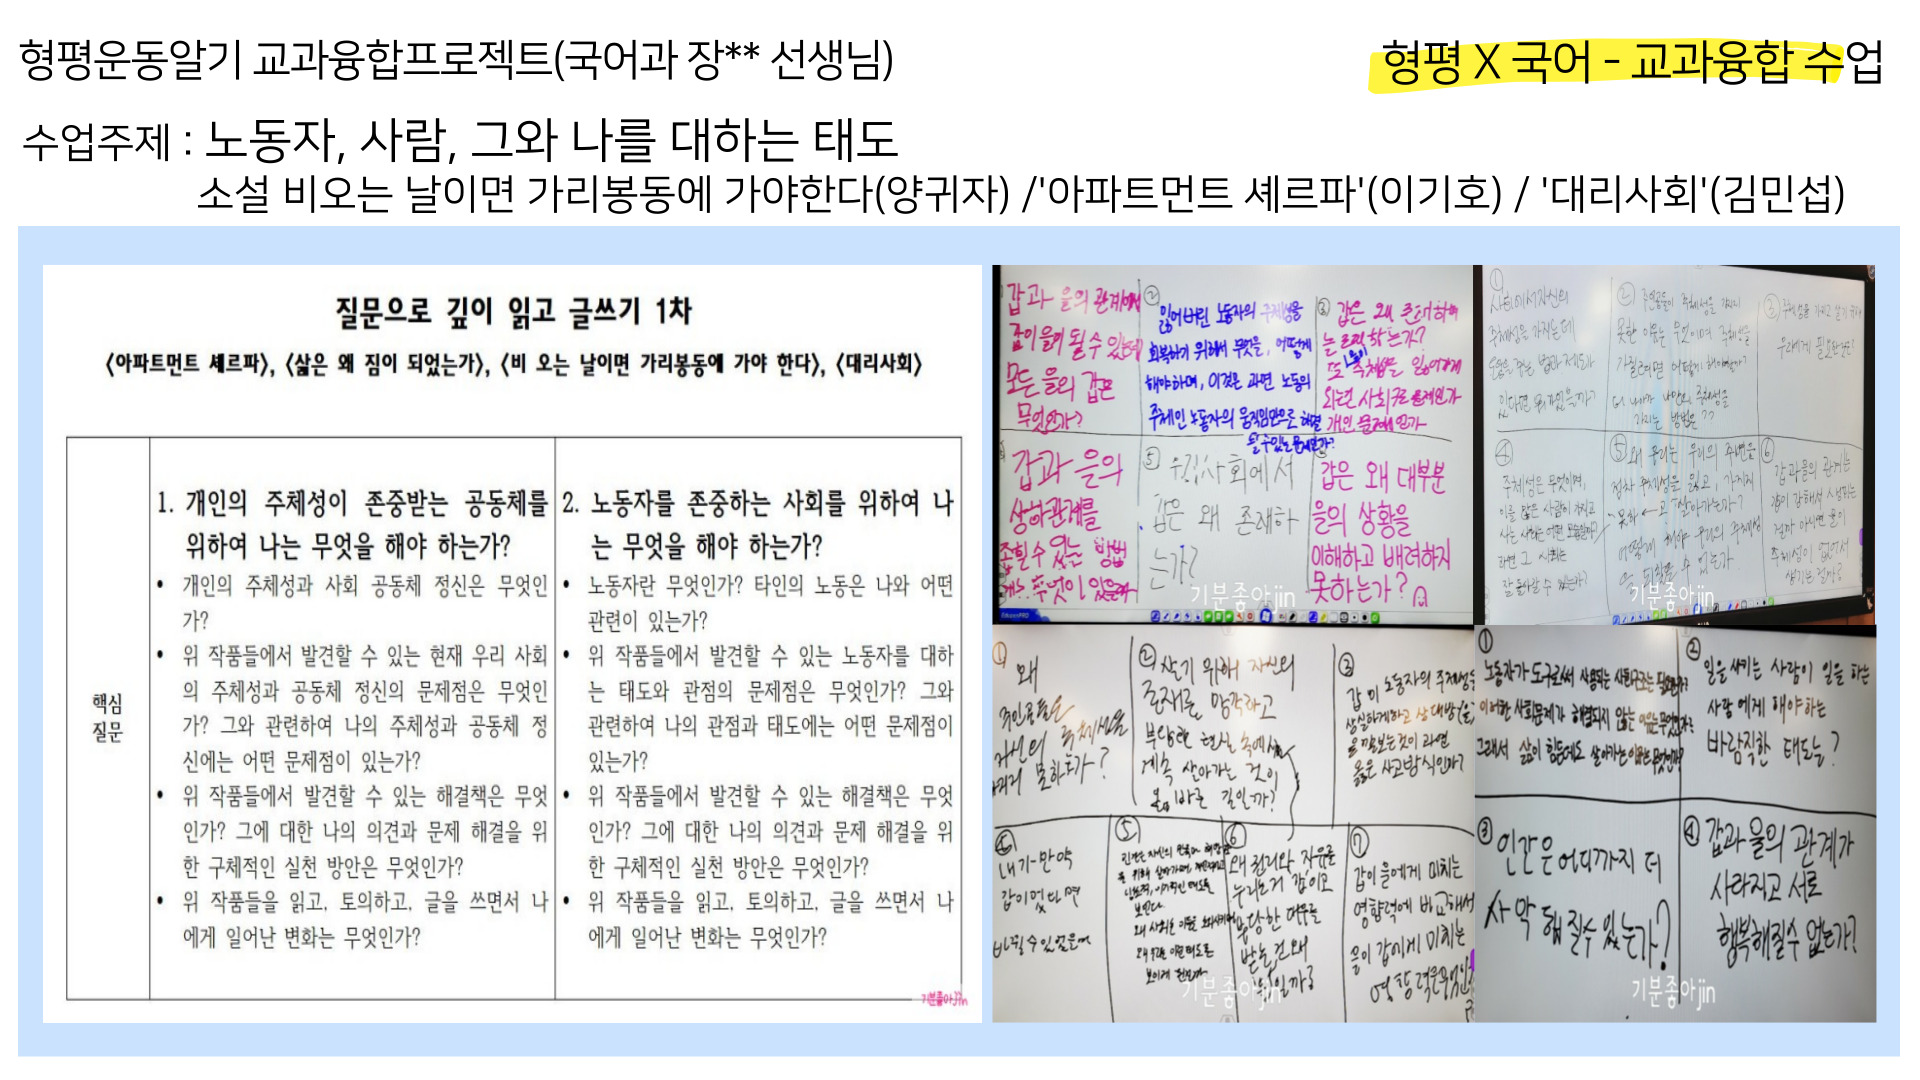 형평운동알기 교과융합프로젝트(국어과 장** 선생님)
형평 X 국어 - 교과융합 수업
수업주제 : 노동자, 사람, 그와 나를 대하는 태도
소설 비오는 날이면 가리봉동에 가야한다(양귀자) /'아파트먼트 셰르파'(이기호) / '대리사회'(김민섭)
질문으로 깊이 읽고 글쓰기 1차
〈아파트먼트 셰르파〉, 〈삶은 왜 짐이 되었는가〉, 〈비 오는 날이면 가리봉동에 가야 한다〉, 〈대리사회〉
핵심
질문
1. 개인의 주체성이 존중받는 공동체를
위하여 나는 무엇을 해야 하는가?
• 개인의 주체성과 사회 공동체 정신은 무엇인
가?
• 위 작품들에서 발견할 수 있는 현재 우리 사회
의 주체성과 공동체 정신의 문제점은 무엇인
가? 그와 관련하여 나의 주체성과 공동체 정
신에는 어떤 문제점이 있는가?
• 위 작품들에서 발견할 수 있는 해결책은 무엇
인가? 그에 대한 나의 의견과 문제 해결을 위
한 구체적인 실천 방안은 무엇인가?
• 위 작품들을 읽고, 토의하고, 글을 쓰면서 나
에게 일어난 변화는 무엇인가?
2. 노동자를 존중하는 사회를 위하여 나
는 무엇을 해야 하는가?
• 노동자란 무엇인가? 타인의 노동은 나와 어떤
관련이 있는가?
• 위 작품들에서 발견할 수 있는 노동자를 대하
는 태도와 관점의 문제점은 무엇인가? 그와
관련하여 나의 관점과 태도에는 어떤 문제점이
있는가?
• 위 작품들에서 발견할 수 있는 해결책은 무엇
인가? 그에 대한 나의 의견과 문제 해결을 위
한 구체적인 실천 방안은 무엇인가?
• 위 작품들을 읽고, 토의하고, 글을 쓰면서 나
에게 일어난 변화는 무엇인가?
기분좋아jin
갑과 을의 관계에서
갑이 을이 될 수 있는데
모든 을의 갑은
무엇인가?
② 잃어버린 노동자의 주체성을
회복하기 위해서 무엇을, 어떻게
해야하며, 이것은 과연 노동의
주체인 노동자의 움직임만으로 해결
될 수 있는 문제인가?
③ 갑은 왜 존재하며
개인 문제인가
갑과 을의
상하관계를
좁힐 수 있는 방법
⑤ 우리 사회에서
갑은 왜 존재하
는가?
갑은 왜 대부분
을의 상황을
이해하고 배려하지
못하는가?
기분좋아jin
①
사회에서 자신의
주체성을 가지는데
도움을 주는 법과 제도가
있다면
② 주인공들이 주체성을 가지지
못한 이유는 무엇이며 주체성을
가지려면 어떻게 해야할까?
③ 주체성을 가지고 살기 위해
우리에게 필요한것은?
④
주체성은 무엇이며,
이를 많은 사람이 가지고
사는 사회는 어떤 모습일까?
⑤ 왜 우리는 우리의 주변을
점차 주체성을 잃고, 가지지
못하고 살아가는가?
⑥
갑과 을의 관계는
갑이 강해서 생기는
걸까 아니면 을이
주체성이 없어서
생기는 걸까?
기분좋아jin
① 왜
주인공들은
자신의 주체성을
가지지 못하는가?
② 살기 위해 자신의
존재를 망각하고
부당한 현실 속에서
계속 살아가는 것이
올바른 길인가?
③
갑이 노동자의 주체성을
상실하게하고 상대방(을)
을 깔보는것이 과연
옳은 사고방식인가?
④
내가 만약
갑이었다면
바뀔 수 있었을까
⑤
⑥
왜 권리와 자유를
누리는거 갑이고
부당한 대우를
받는건 왜
을일까?
⑦
갑이 을에게 미치는
영향력에 비교해서
을이 갑에게 미치는
영향력은 무엇인가
기분좋아jin
①
노동자가 도구로써 사용되는 사회구조는 필요한가?
이러한 사회문제가 해결되지 않는 이유는 무엇인가?
그래서 삶이 힘든데도 살아가는 이유는 무엇인가?
②
일을 시키는 사람이 일을 하는
사람에게 해야하는
바람직한 태도는?
③
인간은 어디까지 더
사악해질수 있는가?
④ 갑과 을의 관계가
사라지고 서로
행복해질수 없는가?
기분좋아jin